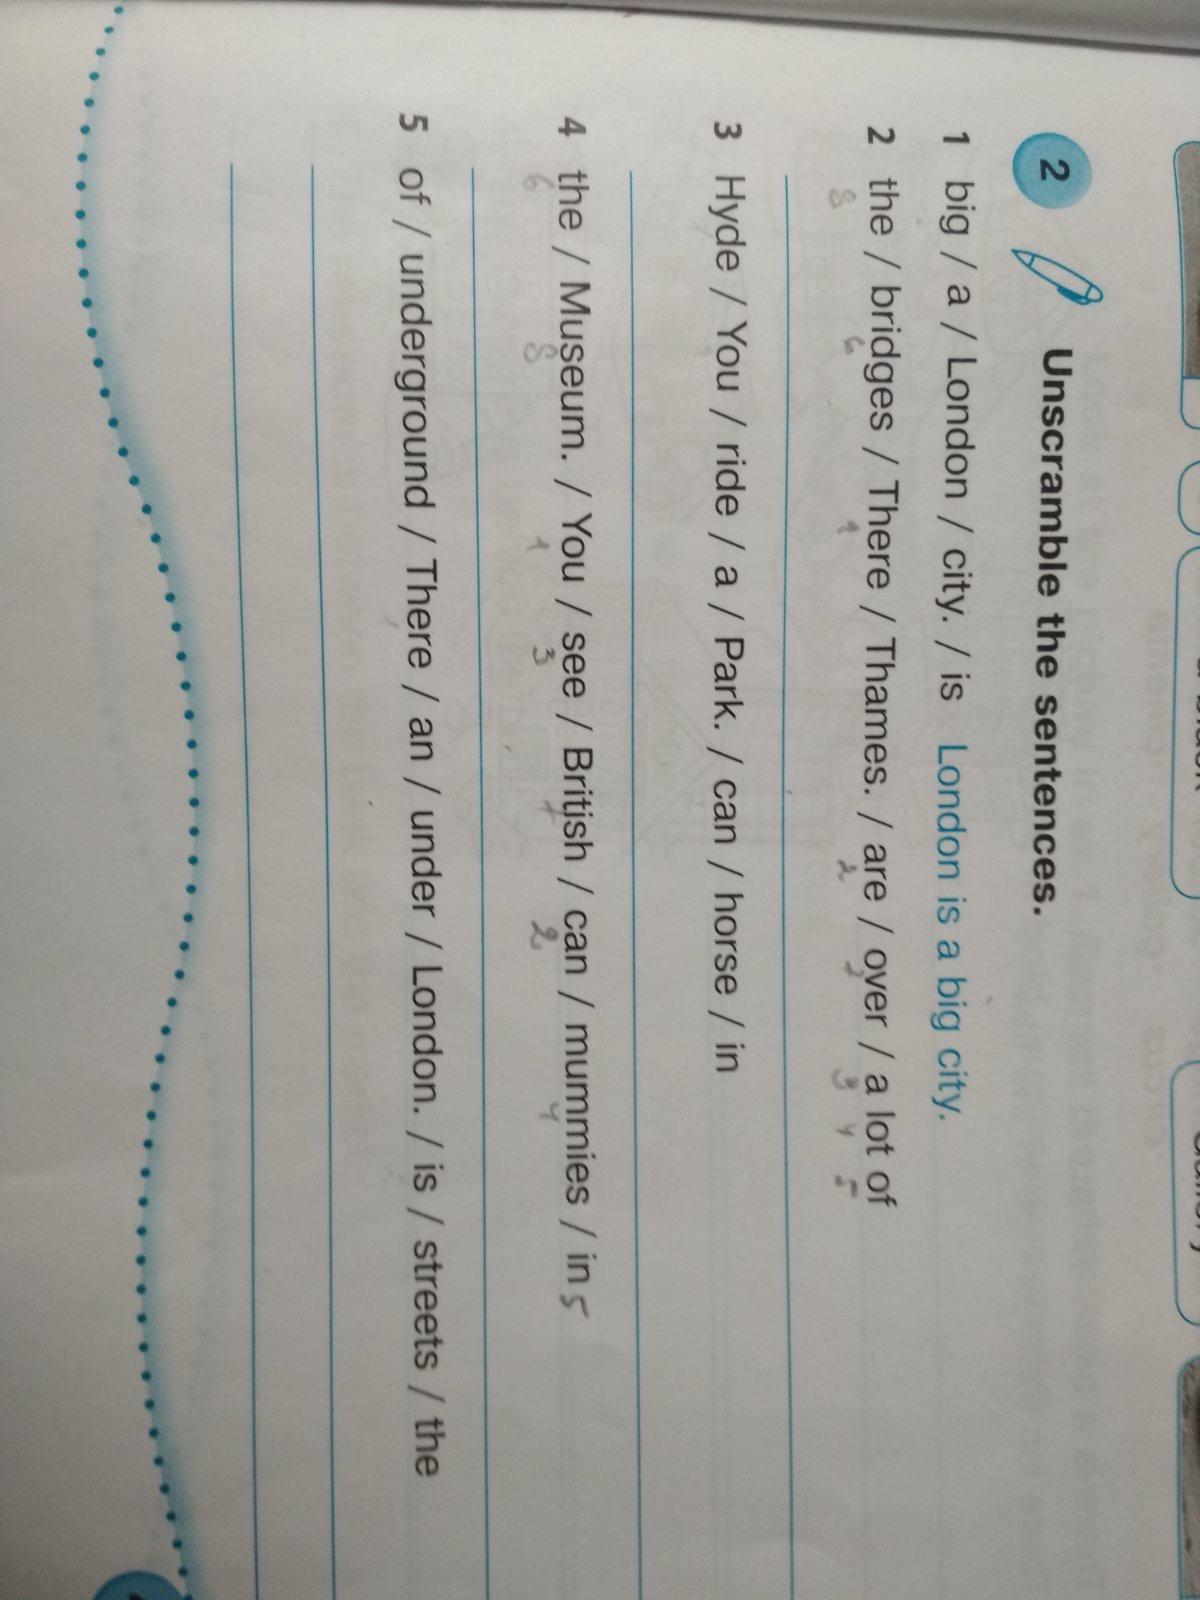 2 Unscramble the sentences.
1 big / a / London / city. / is London is a big city.
2 the / bridges / There / Thames. / are / over / a lot of
8 6 1 2 7 3 4 5
3 Hyde / You / ride / a / Park. / can / horse / in
4 the / Museum. / You / see / British / can / mummies / in 5
6 8 1 3 7 2 4
5 of / underground / There / an / under / London. / is / streets / the